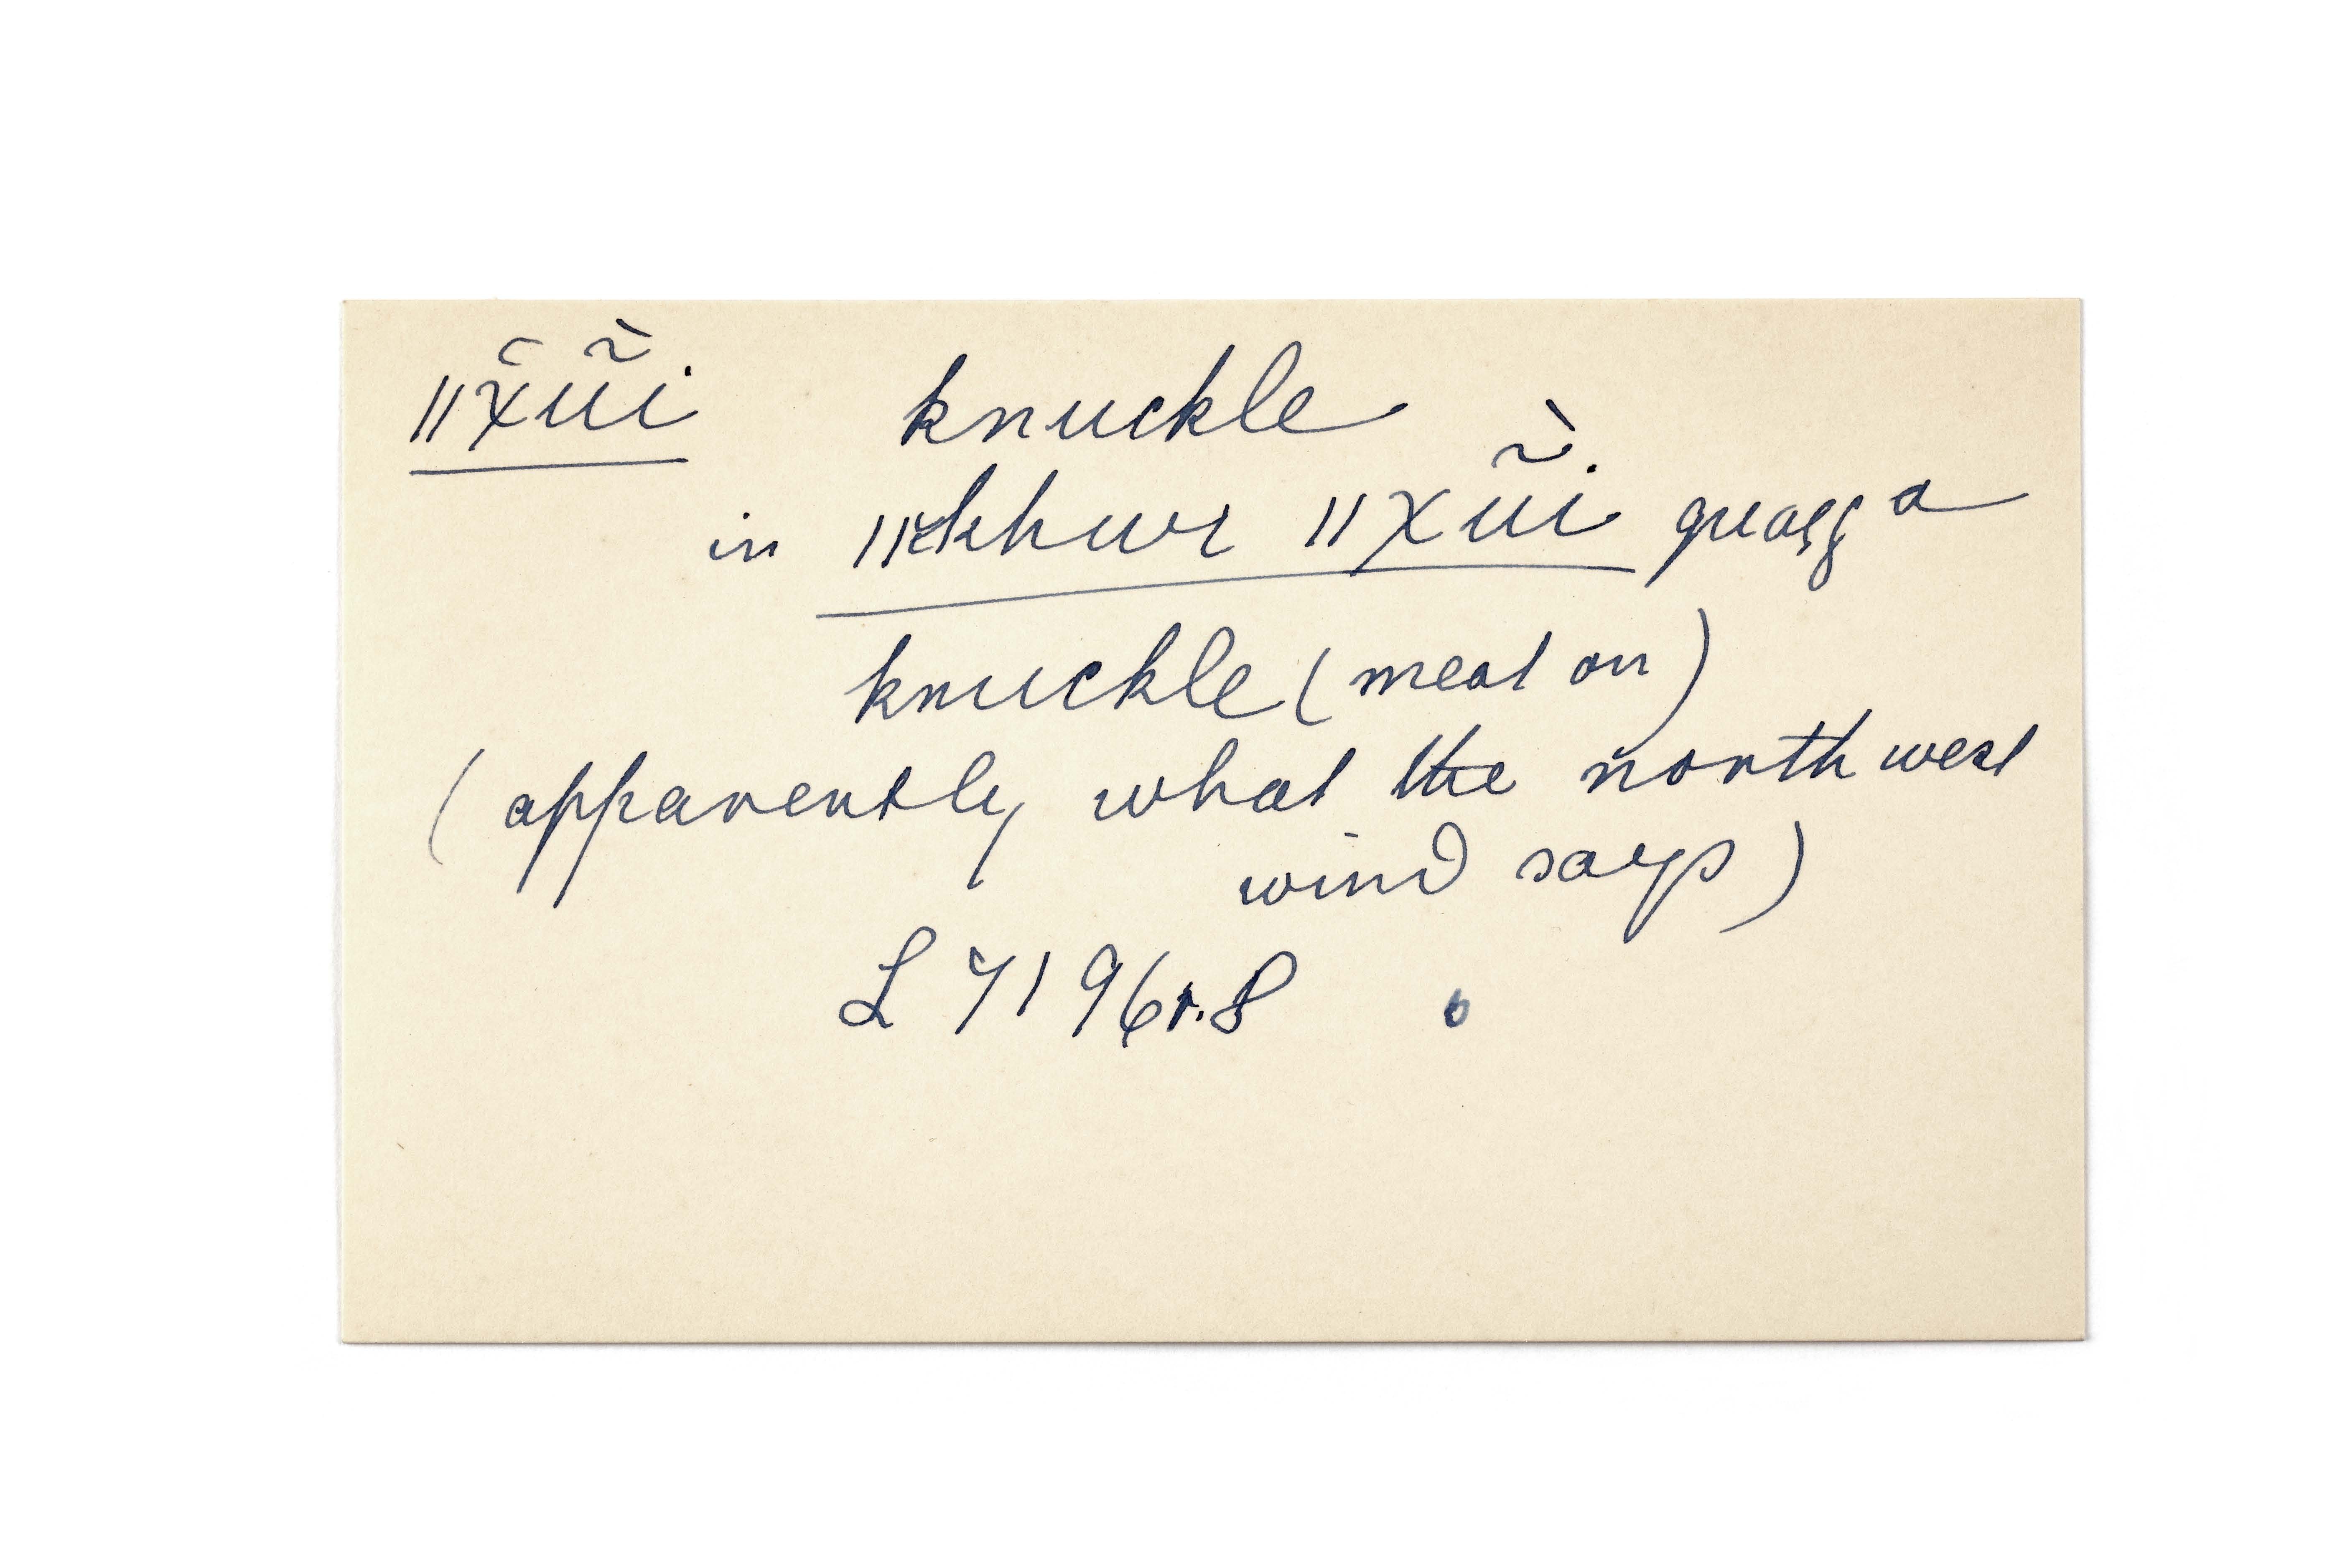 ǁx̆ũ̀i knuckle
in ǁkhwi ǁxũ̀i quagga
knuckle (meat on)
(apparently what the north west
wind says)
L 7196r.8